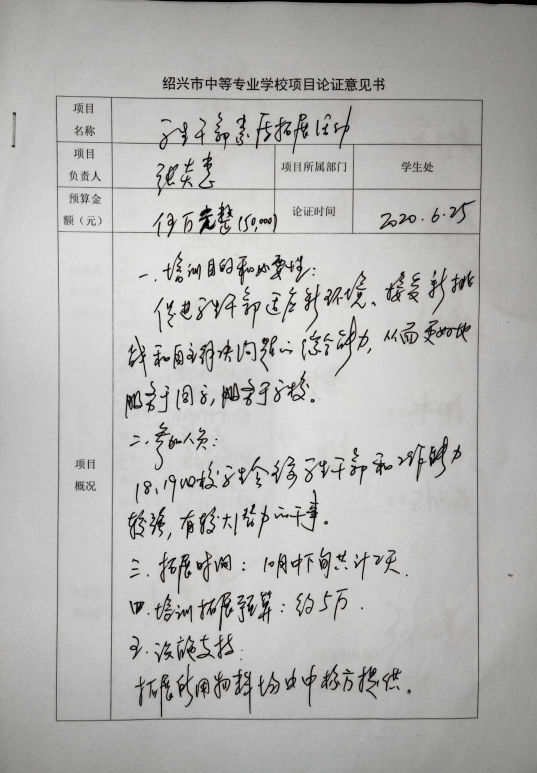 绍兴市中等专业学校项目论证意见书
项目
名称
学生干部素质拓展活动
项目
负责人
张奕
项目所属部门
学生处
预算金
额（元）
伍万完整(50,000)
论证时间
2020.6.25
项目
概况
一.培训目的和必要性:
促进学生干部适应新环境、接受新挑
战和自主解决问题的综合能力,从而更好地
服务于同学,服务于学校。
二.参加人员:
18,19级校学生会全体学生干部和工作能力
较强,有较大潜力的干事。
三.拓展时间:10月中下旬共计2天.
四.培训拓展预算:约5万.
五.设施支持:
拓展所用物料均由中标方提供。